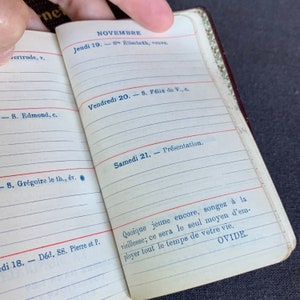 ertrude, v.
— S. Edmond, c.
— S. Grégoire le th., év.
di 18. — Déd. SS. Pierre et P.
NOVEMBRE
Jeudi 19. — Ste Elisabeth, veuve.
Vendredi 20. — S. Félix de V., c.
Samedi 21. — Présentation.
Quoique jeune encore, songez à la
vieillesse; ce sera le seul moyen d'em-
ployer tout le temps de votre vie.
OVIDE.